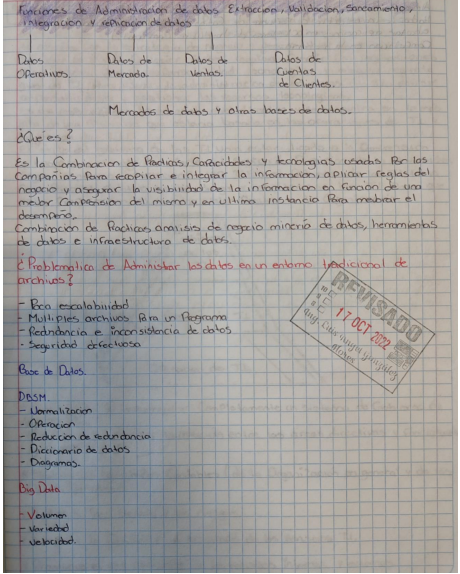 Funciones de Administracion de datos Extraccion, Validacion, Saneamiento,
integracion y replicacion de datos
Datos
Operativos.
Datos de
Mercado.
Datos de
Ventas.
Datos de
Cuentas
de Clientes.
Mercados de datos y otras bases de datos.
¿Que es?
Es la Combinacion de Practicas, Capacidades y tecnologias usadas Por las
Compañias Para recopilar e integrar la informacion, aplicar reglas del
negocio y asegurar la visibilidad de la informacion en funcion de una
mejor Comprension del misma y en ultima instancia Para mejorar el
desempeño.
Combinacion de Practicas analisis de negocio mineria de datos, herramientas
de datos e infraestructura de datos.
¿Problematica de Administrar los datos en un entorno tradicional de
archivos?
- Poca escalabilidad
- Multiples archivos Para un Programa
- Redundancia e inconsistencia de datos
- Seguridad defectuosa
REVISADO
17 OCT 2022
Base de Datos.
DBSM.
- Normalizacion
- Operacion
- Reduccion de redundancia
- Diccionario de datos
- Diagramas.
Big Data
- Volumen
- Variedad
- velocidad.